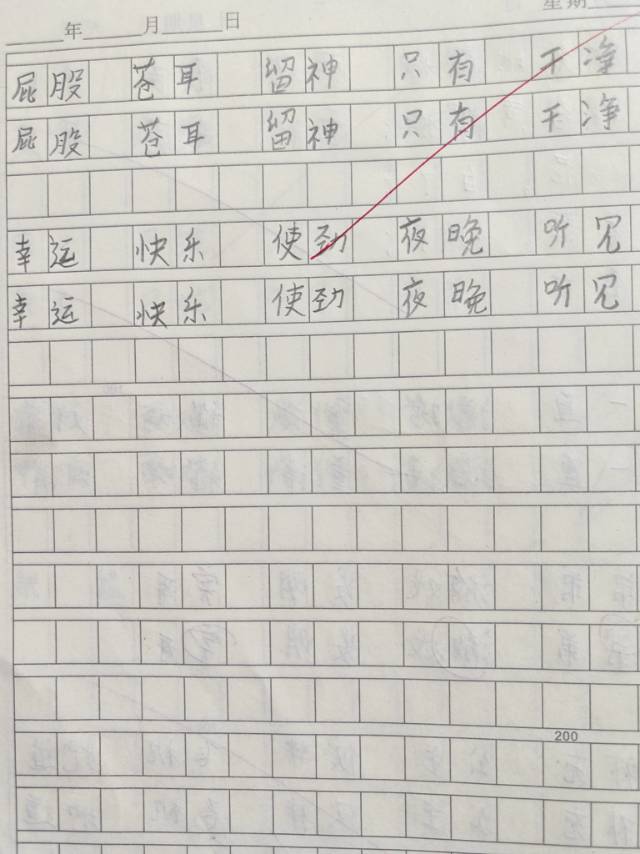 年 月 日 星期
屁股 苍耳 留神 只有 干净
屁股 苍耳 留神 只有 干净
幸运 快乐 使劲 夜晚 听见
幸运 快乐 使劲 夜晚 听见
200